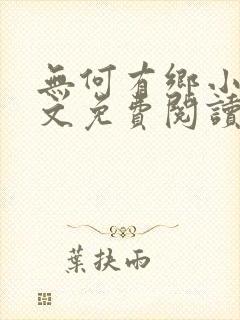 無何有鄉小
文免費閱讀
葉扶雨